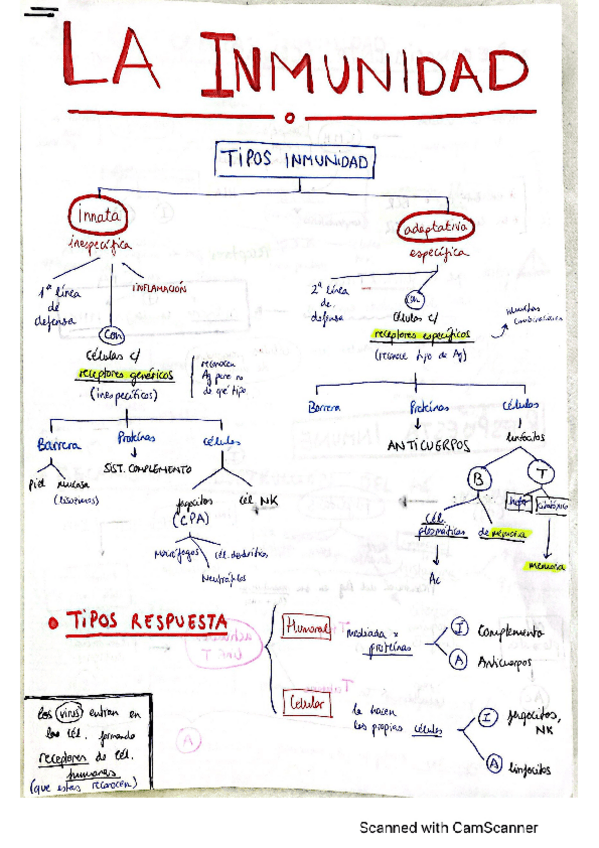 LA INMUNIDAD
TIPOS INMUNIDAD
innata
inespecífica
1ª línea
de
defensa
INFLAMACIÓN
con
células c/
receptores genéricos
(inespecíficos)
reconocen
Ag pero no
de qué tipo
Barrera
Proteínas
células
Piel
mucosa
SIST. COMPLEMENTO
fagocitos
(CPA)
cél NK
Macrófagos
cél. dendríticas
Neutrófilos
adaptativa
específica
2ª línea
de
defensa
con
células c/
receptores específicos
(reconoce tipo de Ag)
muchas
Barrera
Proteínas
células
ANTICUERPOS
linfocitos
B
T
cél.
plasmáticas
de memoria
Ac
memoria
TIPOS RESPUESTA
Humoral
mediada x
proteínas
I Complemento
A Anticuerpos
Celular
la hacen
las propias células
I fagocitos,
NK
A linfocitos
los virus entran en
las cél. formando
receptores de cél.
humanas
(que estas reconocen)
Scanned with CamScanner